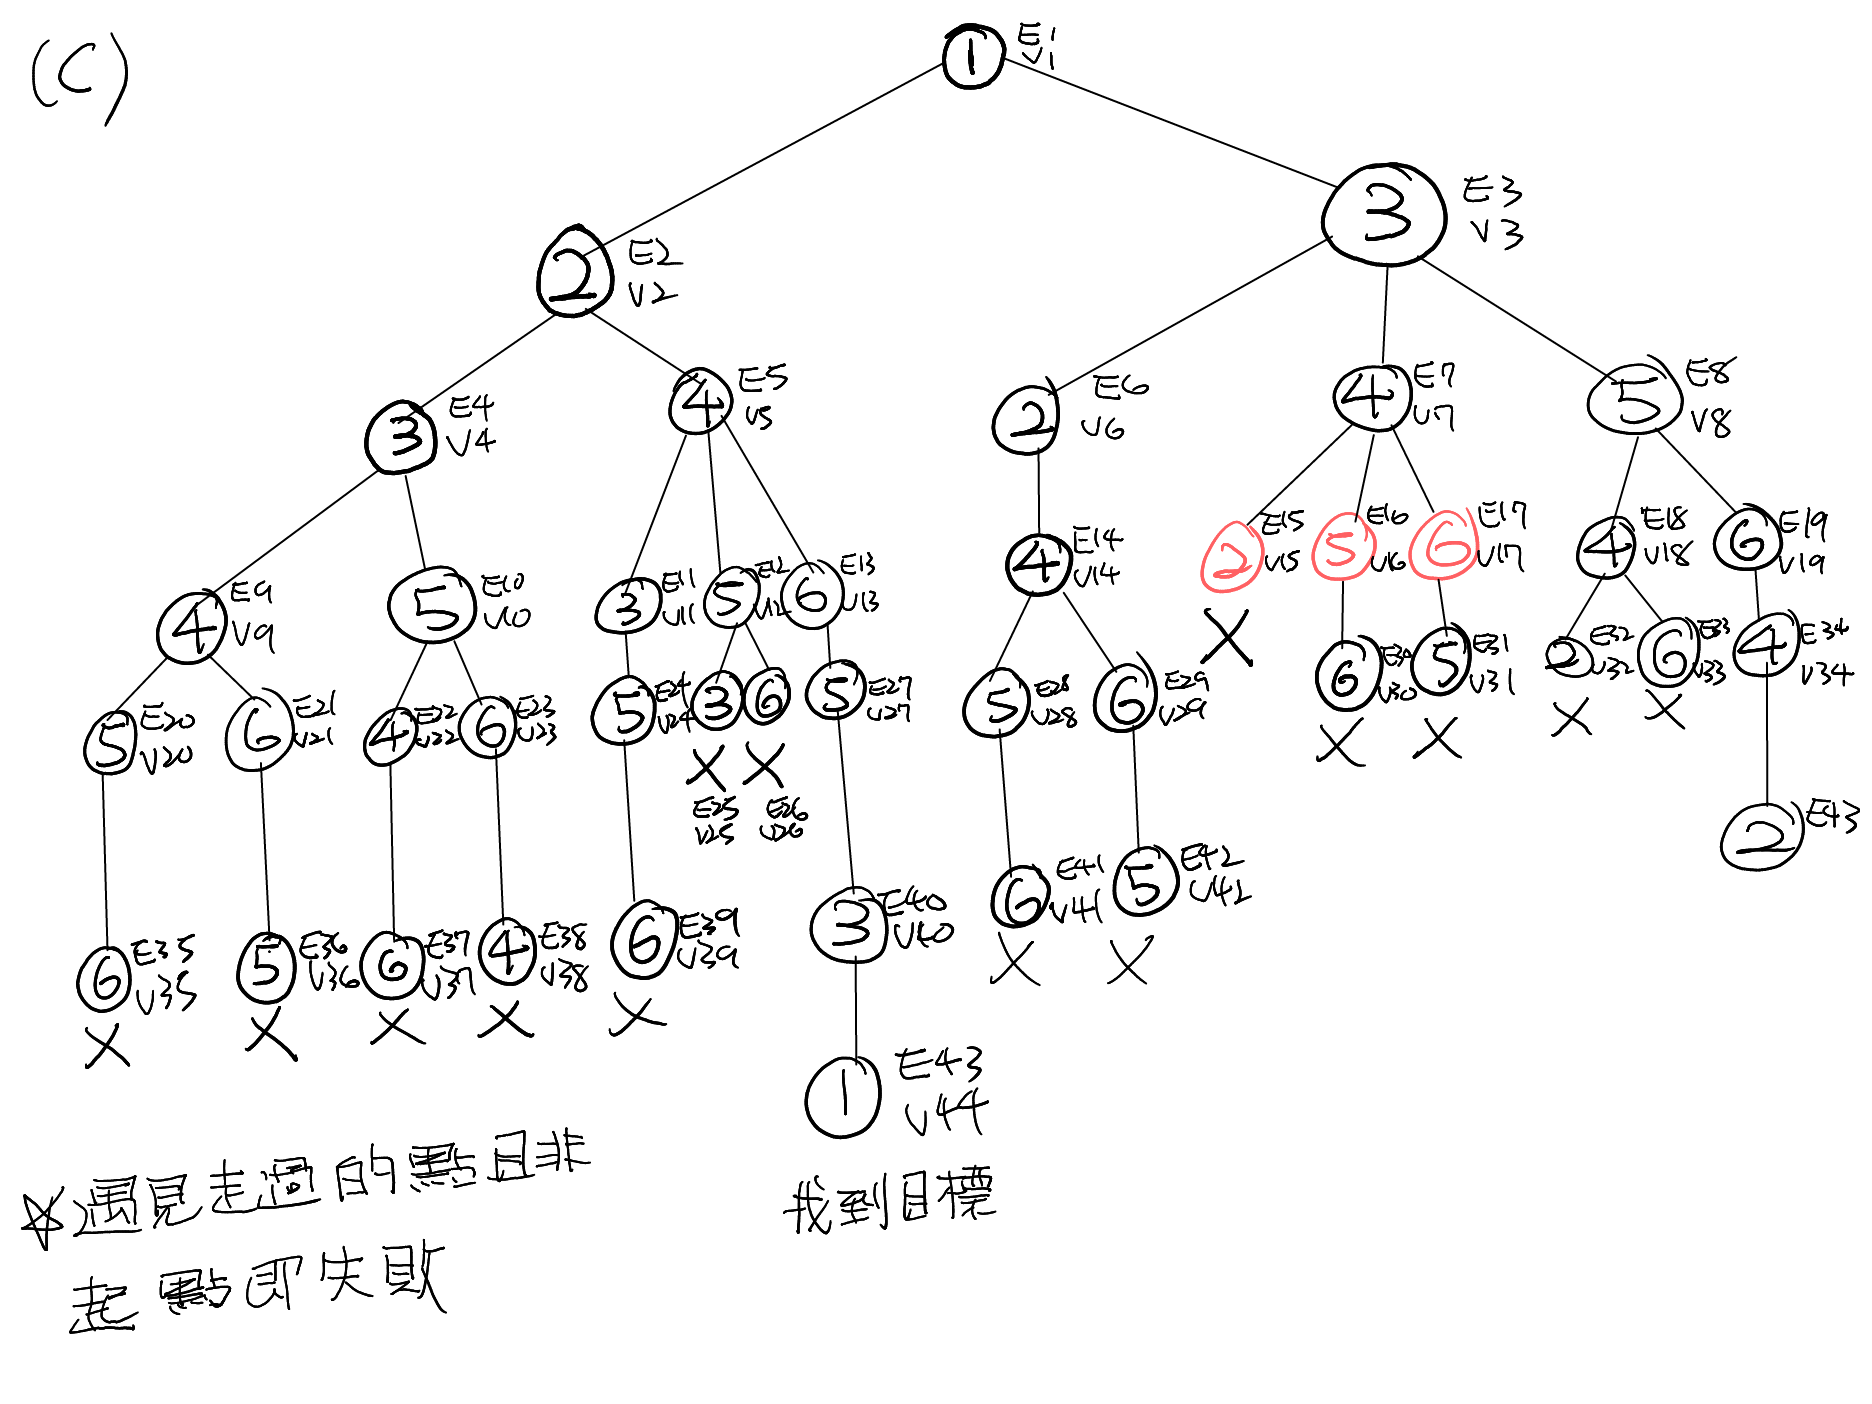 (C)
1 E1
V1
3 E3
V3
2 E2
V2
3 E4
V4
4 E5
V5
2 E6
V6
4 E7
V7
5 E8
V8
4 E9
V9
5 E10
V10
3 E11
V11
5 E12
V12
6 E13
V13
4 E14
V14
2 E15
V15
X
5 E16
V16
6 E17
V17
4 E18
V18
6 E19
V19
5 E20
V20
6 E21
V21
4 E22
V22
6 E23
V23
5 E24
V24
3
X
E25
V25
6
X
E26
V26
5 E27
V27
5 E28
V28
6 E29
V29
6 E30
V30
X
5 E31
V31
X
2 E32
V32
X
6 E33
V33
X
4 E34
V34
6 E35
V35
X
5 E36
V36
X
6 E37
V37
X
4 E38
V38
X
6 E39
V39
X
3 E40
V40
6 E41
V41
X
5 E42
V42
X
2 E43
1 E43
V44
找到目標
☆遇見走過的點且非
起點即失敗